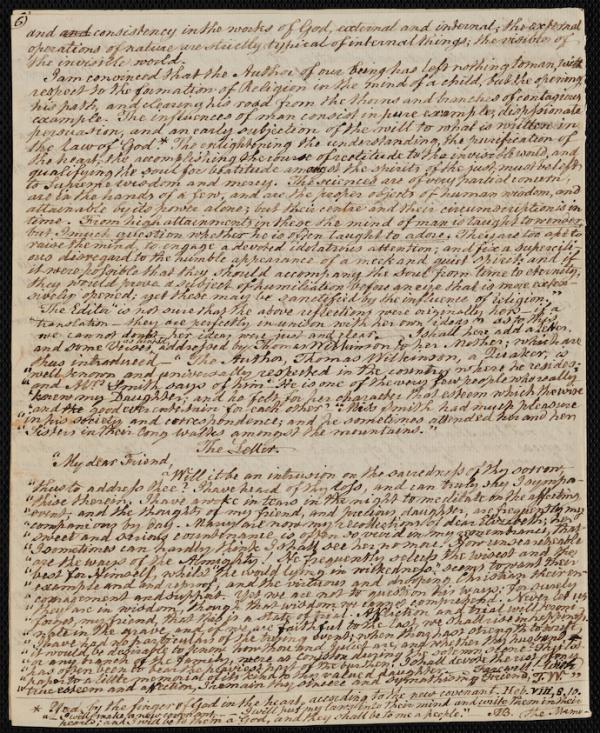 6)
and and consistency in the works of God, external and internal; the external
operations of nature are strictly typical of internal things; the visible of
the invisible world.
I am convinced that the Author of our Being has left nothing to man, with
respect to the formation of Religion in the mind of a child, but the opening
his path, and clearing his road from the thorns and branches of contagious
example. The influences of man consist in pure example, dispassionate
persuasion, and an early subjection of the will to what is written in
the law of God.* The enlightening the understanding, the purification of
the heart, the accomplishing the course of rectitude to the invisible world, and
qualifying the soul for beatitude amongst the spirits of the just, must be left
to supreme wisdom and mercy. The sciences are of very partial concern
are in the hands of few, and are the proper objects of human wisdom, and
attainable by its power alone; but their centre and their circumscription is in
time. From high attainments in these the mind of man is taught to wonder,
but I much question whether he is often taught to adore. They are too apt to
raise the mind, to engage a devoted idolatrous attention; and fix a supercili-
ous disregard to the humble appearance of a meek and quiet Spirit; and if
it were possible that they should accompany the soul from time to eternity,
they would prove a subject of humiliation before an eye that is more exten-
sively opened; yet these may be sanctified by the influence of religion."
The Editor is not sure that the above reflections were originally hers—if a
translation—they are perfectly in unison with her own ideas; as to this
we cannot her idea were just and clear. I shall here add a letter,
and some Verses, addressed by Thomas Wilkinson to her Mother; which are
thus introduced—"The Author, Thomas Wilkinson, a Quaker, is
well known and universally respected in the country where he resides;
and Mrs. Smith says of him "He is one of the very few people who really
knew my Daughter; and he felt for her character that esteem which the wise
and the good entertain for each other." Miss Smith had much pleasure
in his society and correspondence; and he sometimes attended her and her
Sisters in their long walks amongst the mountains."
The Letter.
"My dear Friend,
"Will it be an intrusion on the sacredness of thy sorrow,
thus to address thee? I have heard of thy loss, and can truly say I sympa-
thise therein. I have awoke in tears in the night to meditate on the affecting
event; and the thoughts of my friend, and precious daughter, are frequently my
companions by day. Many are now my recollections of dear Elizabeth; her
sweet and serious countenance is often so vivid in my remembrance, that
I sometimes can hardly think I shall see her no more! How unsearchable
are the ways of the Almighty! He frequently selects the wisest and the
best for Himself, whilst the world lying in wickedness seems to want their
example and reproof, and the virtuous and drooping Christian their en-
couragement and support. Yet we are not to question his ways: for surely
they are in wisdom, though that wisdom we cannot comprehend. Never let us
forget, my friend, that this is a state of trial; affliction and trial will
in the grave, and if we are faithful to the last, we shall rise in
I have had no particulars of the trying event; when thou hast strength to write,
I would be desirable to know how thou and Juliet are, and whether thy husband, &
or any branch of the family, were a consolation during the solemn scene. This is
has often been to bear the heaviest part of the burthen. I shall devote the rest of my
paper to a little memorial of its kind to thy valued daughter. Farewell! with
true esteem and affection, I remain thy sincere and sympathising Friend, T. W."
* Heb. by the finger of God in the heart, according to the new covenant. Heb. VIII, 8. 10.
"—I will make a new covenant—I will put my laws into their mind and write them in their
hearts; and I will be to them a God, and they shall be to me a people." NB. The Memo-